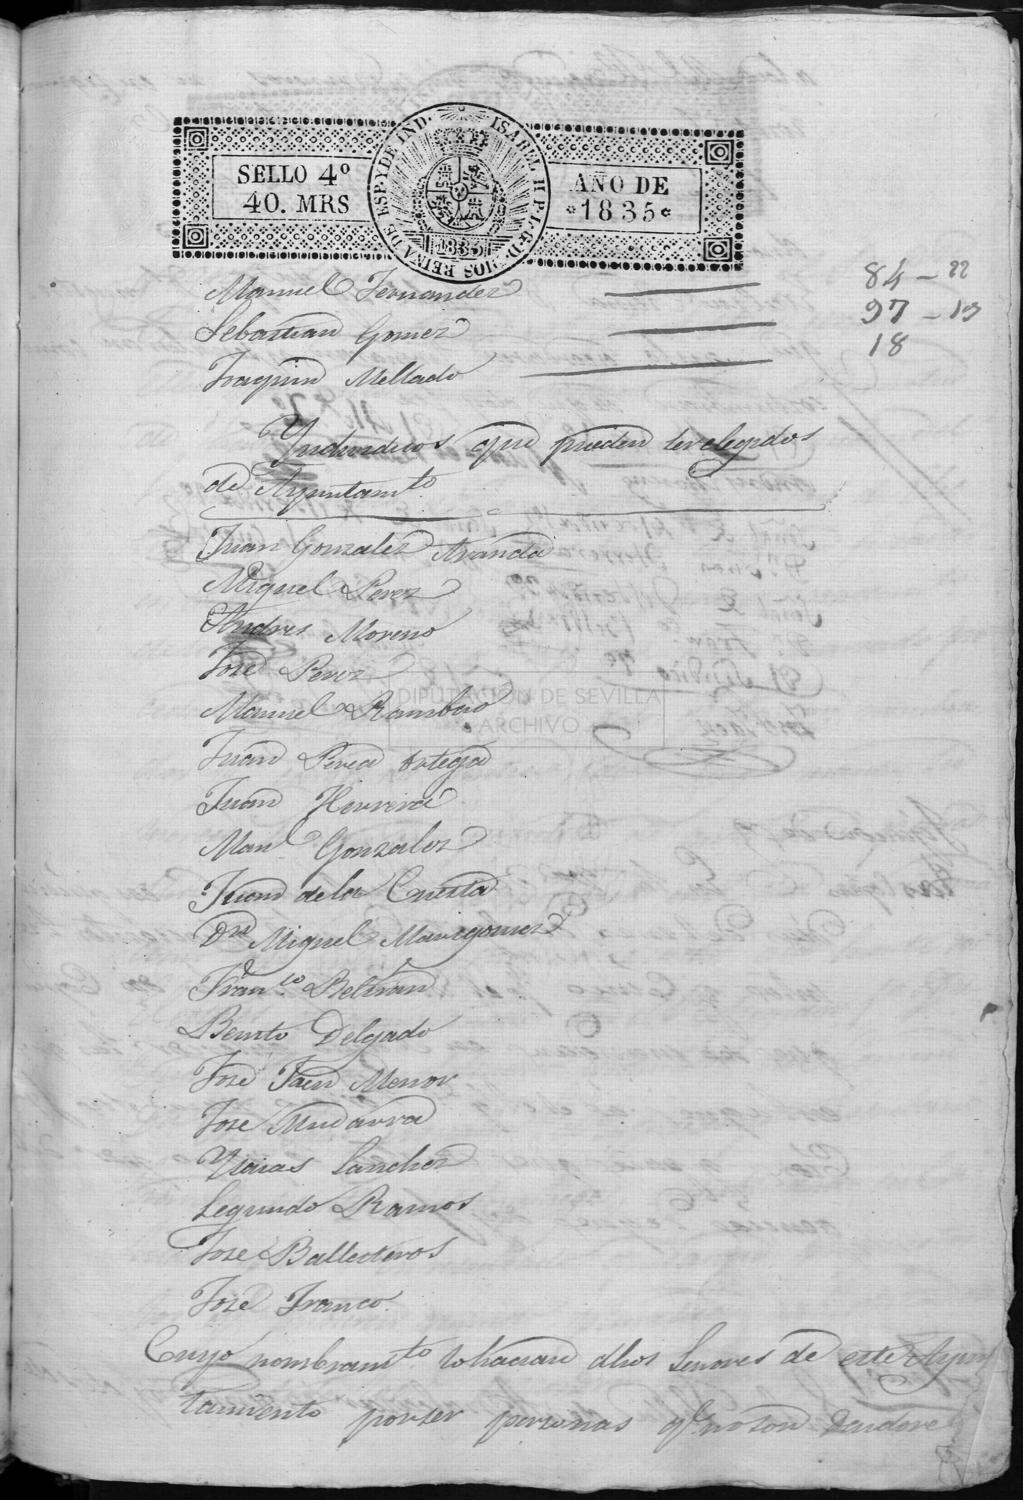 SELLO 4º
40. MRS
ISABEL II P. L. G. D. DIOS REINA DE ESP. Y DE IND.
1835
AÑO DE
1835
Manuel Fernandez 84 - 22
Sebastian Gomez 97 - 13
Joaquin Mellado 18
Yndividuos que pueden ser elegidos
de Ayuntamto
Juan Gonzalez Aranda
Miguel Perez
Andres Moreno
José Perez
Manuel Rambao
Juan Perea Ortega
Juan Herrera
Manl Gonzalez
Juan de la Cuesta
Dn Miguel Marigomez
Franco Beltran
Benito Delgado
José Jaen Menor
José Mudarra
Ysaias Sanchez
Segundo Ramos
José Ballesteros
José Franco
Cuyo nombramto lo hacian dhos Señores de este Ayun
tamiento por ser personas qe no son deudore
DIPUTACIÓN DE SEVILLA
ARCHIVO